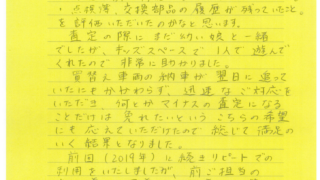 ・点検簿、交換部品の履歴が残っていたこと
を評価いただいたのかなと思います。
査定の際にまだ幼い娘と一緒
でしたが、キッズスペースで1人で遊んで
くれたので非常に助かりました。
買替え車両の納車が翌日に迫って
いたにもかかわらず、迅速なご対応を
いただき、何とかマイナスの査定になる
ことだけは免れたいというこちらの希望
にも応えていただけたので総じて満足の
いく結果となりました。
前回(2019年)に続きリピートでの
利用をいたしましたが、前ご担当の